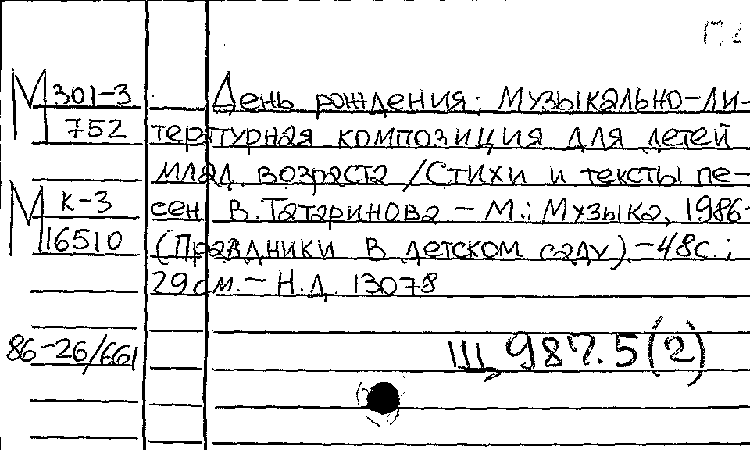 М 301-3
752
День рождения: Музыкально-ли-
тературная композиция для детей
млад. возраста /Стихи и тексты пе-
М К-3
сен В. Татаринова - М.: Музыка, 1986-
16510
(Праздники в детском саду).-48с.;
29см.- Н.Д. 13078
86-26/661
Щ 987.5(2)